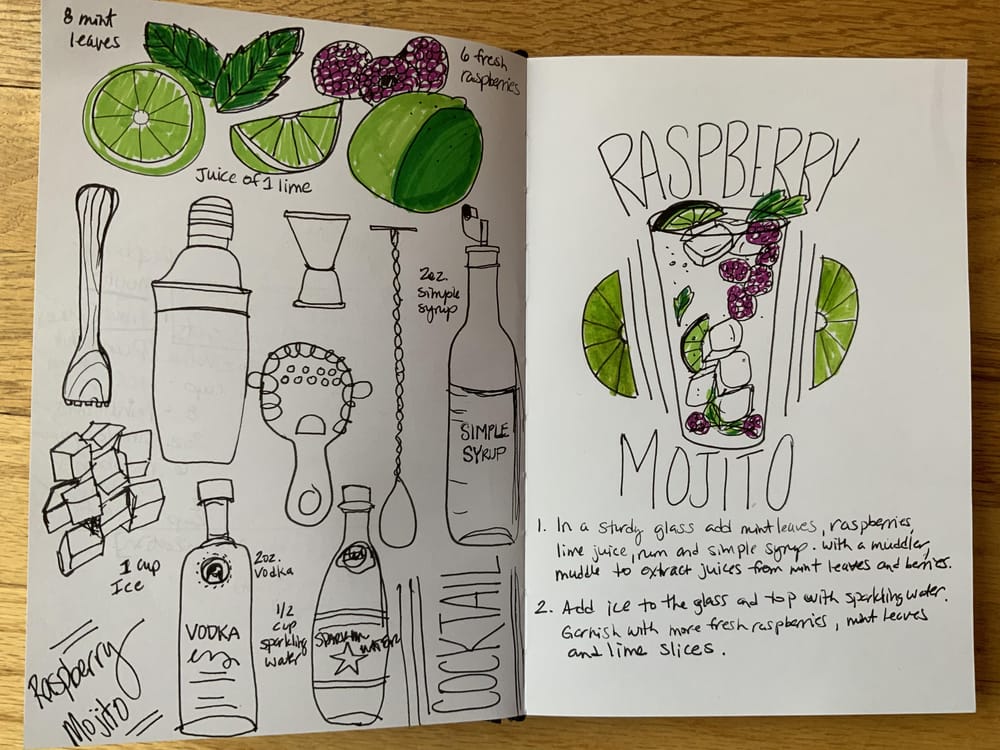 8 mint
leaves
6 fresh
raspberries
Juice of 1 lime
2oz.
Simple
syrup
SIMPLE
SYRUP
1 cup
Ice
2oz.
Vodka
VODKA
1/2
cup
sparkling
water
COCKTAIL
Raspberry
Mojito
RASPBERRY
MOJITO
1. In a sturdy glass add mint leaves, raspberries,
lime juice, rum and simple syrup. With a muddler,
muddle to extract juices from mint leaves and berries.
2. Add ice to the glass and top with sparkling water.
Garnish with more fresh raspberries, mint leaves
and lime slices.